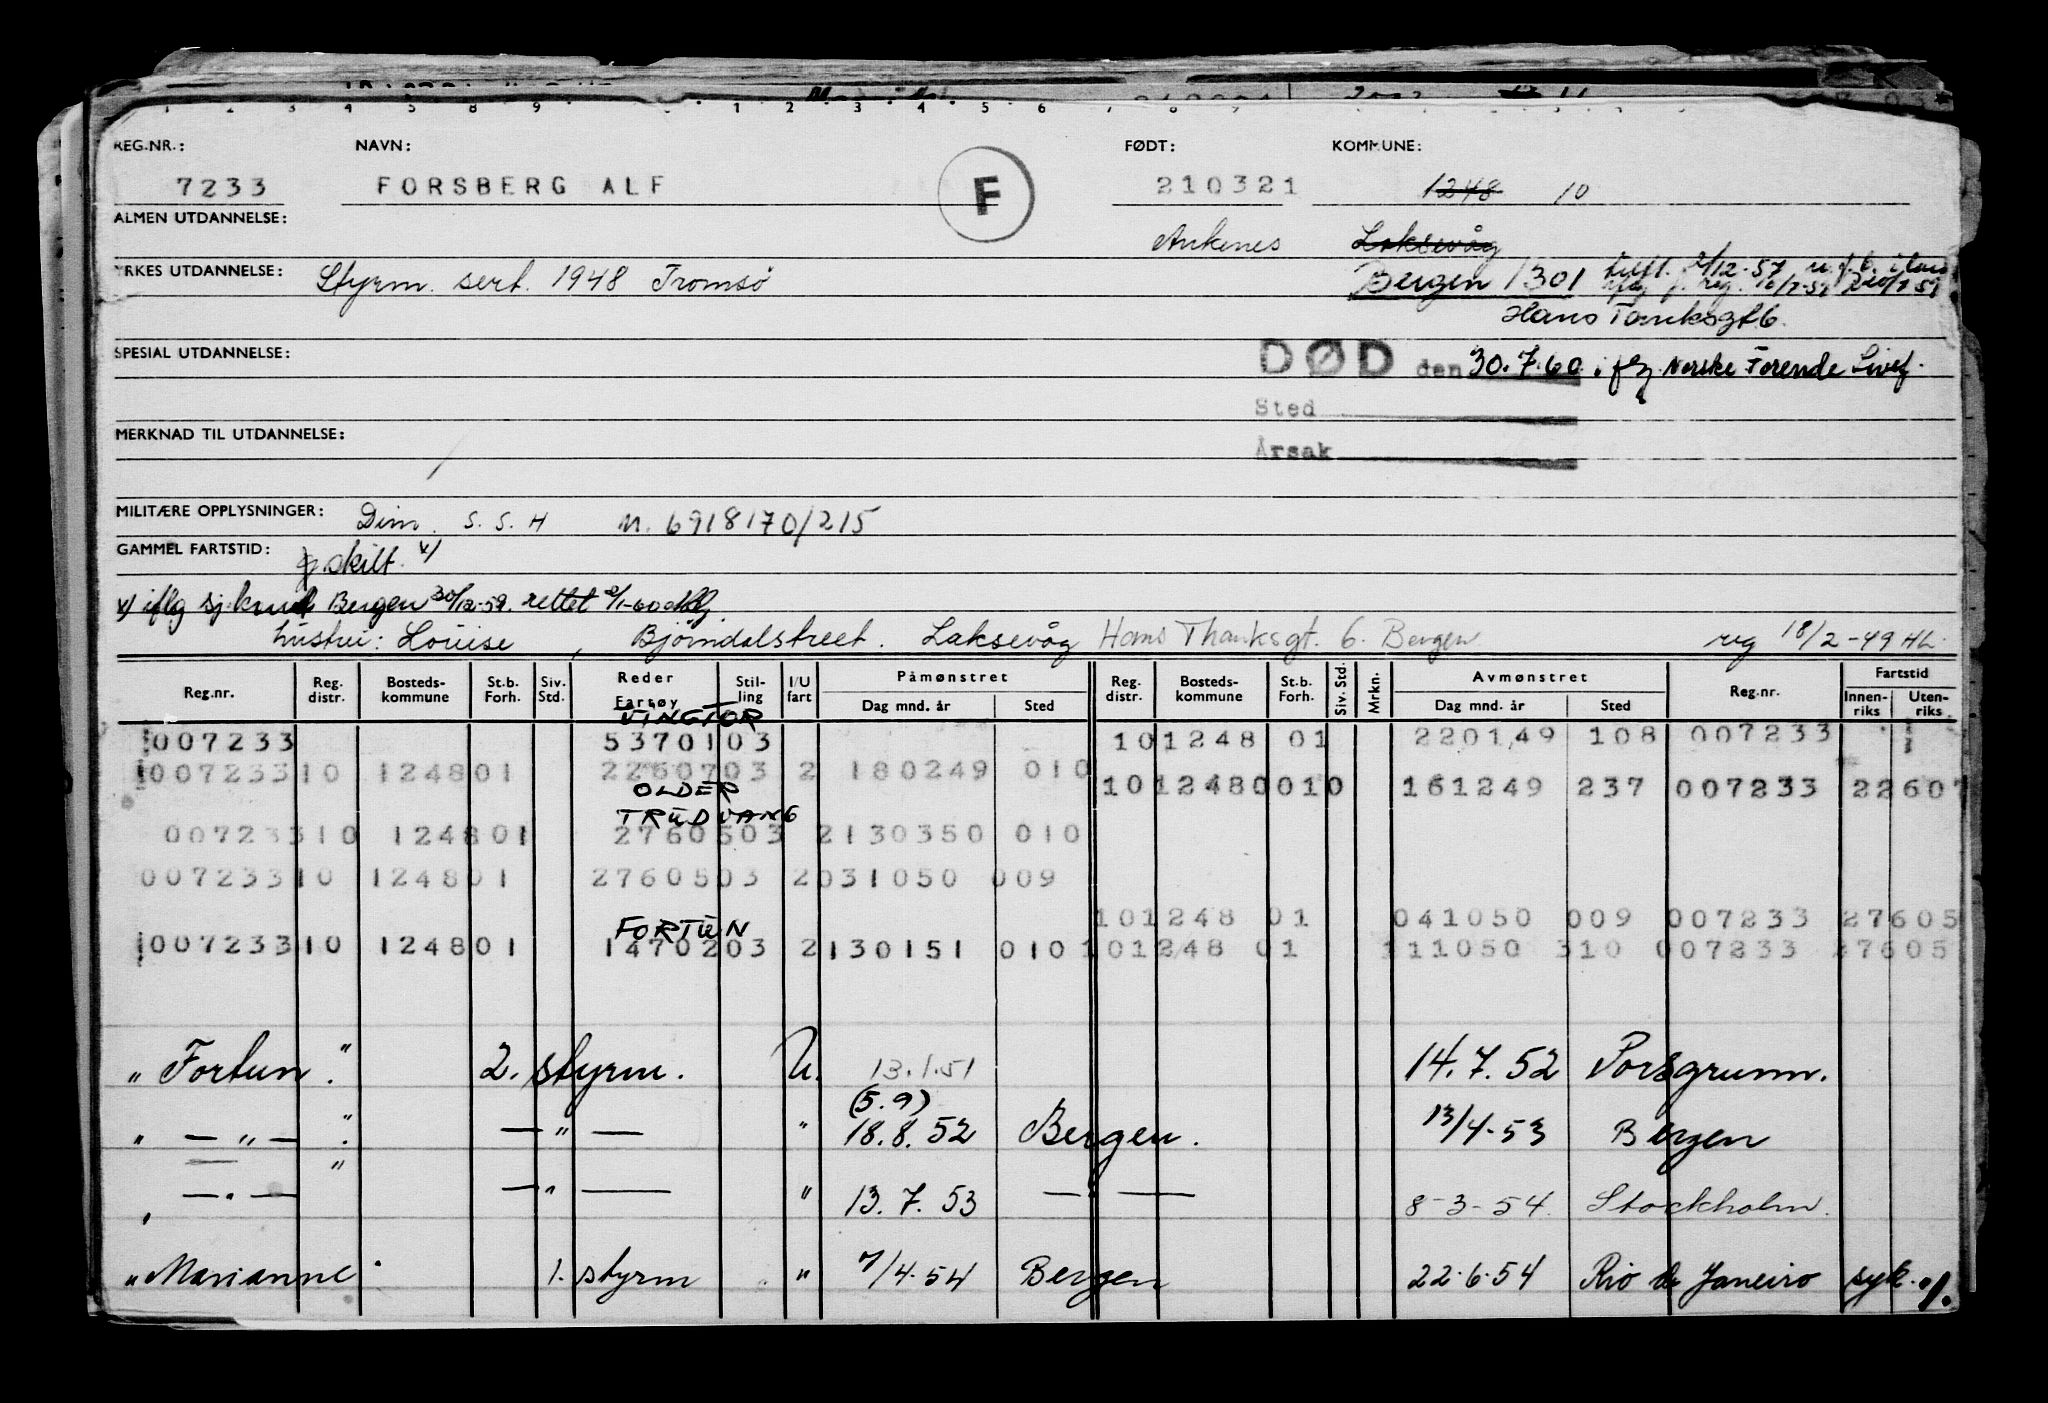 1 2 3 4 5 6 7 8 9 1 2 3 4 5 6 7 8 9
REG.NR.: NAVN: FØDT: KOMMUNE:
7233 FORSBERG ALF F 210321 1248 10
ALMEN UTDANNELSE: Ankenes Laksevåg
YRKES UTDANNELSE: Styrm. sert. 1948 Tromsø Bergen 1301
Hans Tanksgt 6.
SPESIAL UTDANNELSE: DØD den 30.7.60. iflg Norske Forende Livsf.
Sted
MERKNAD TIL UTDANNELSE:
Årsak
MILITÆRE OPPLYSNINGER: Dim. S.S.H M. 6918170/215
GAMMEL FARTSTID: skilt. x/
x/ iflg sj.kont Bergen 30/12-59. rettet
hustru: Louise, Bjørndalstreet. Laksevåg Hans Thanksgt. 6. Bergen reg 18/2-49 HL.
Reg.nr. Reg. distr. Bosteds-kommune St.b. Forh. Siv. Std. Reder Fartøy Stil-ling I/U fart Påmønstret Dag mnd. år Sted Reg. distr. Bosteds-kommune St.b. Forh. Siv. Std. Mrkn. Avmønstret Dag mnd. år Sted Reg.nr. Fartstid Innen-riks Uten-riks
VINGTOR
007233 5370103 101248 01 220149 108 007233
00723310 124801 2260703 2 180249 010
OLDER
1012480010 161249 237 007233 22607
TRUDVANG
00723310 124801 2760503 2130350 010
00723310 124801 2760503 2031050 009
101248 01 041050 009 007233 27605
FORTUN
00723310 124801 1470203 2130151 010 101248 01 111050 310 007233 27605
" Fortun " 2. styrm. U. 13.1.51 14.7.52 Porsgrunn.
(5.9)
" — " — " — " — " 18.8.52 Bergen. 13/4-53 Bergen
— " — " — " — " 13.7.53 — " — 8-3-54. Stockholm.
" Marianne " 1. styrm " 7/4.54 Bergen 22.6.54 Rio de Janeiro syk. %.